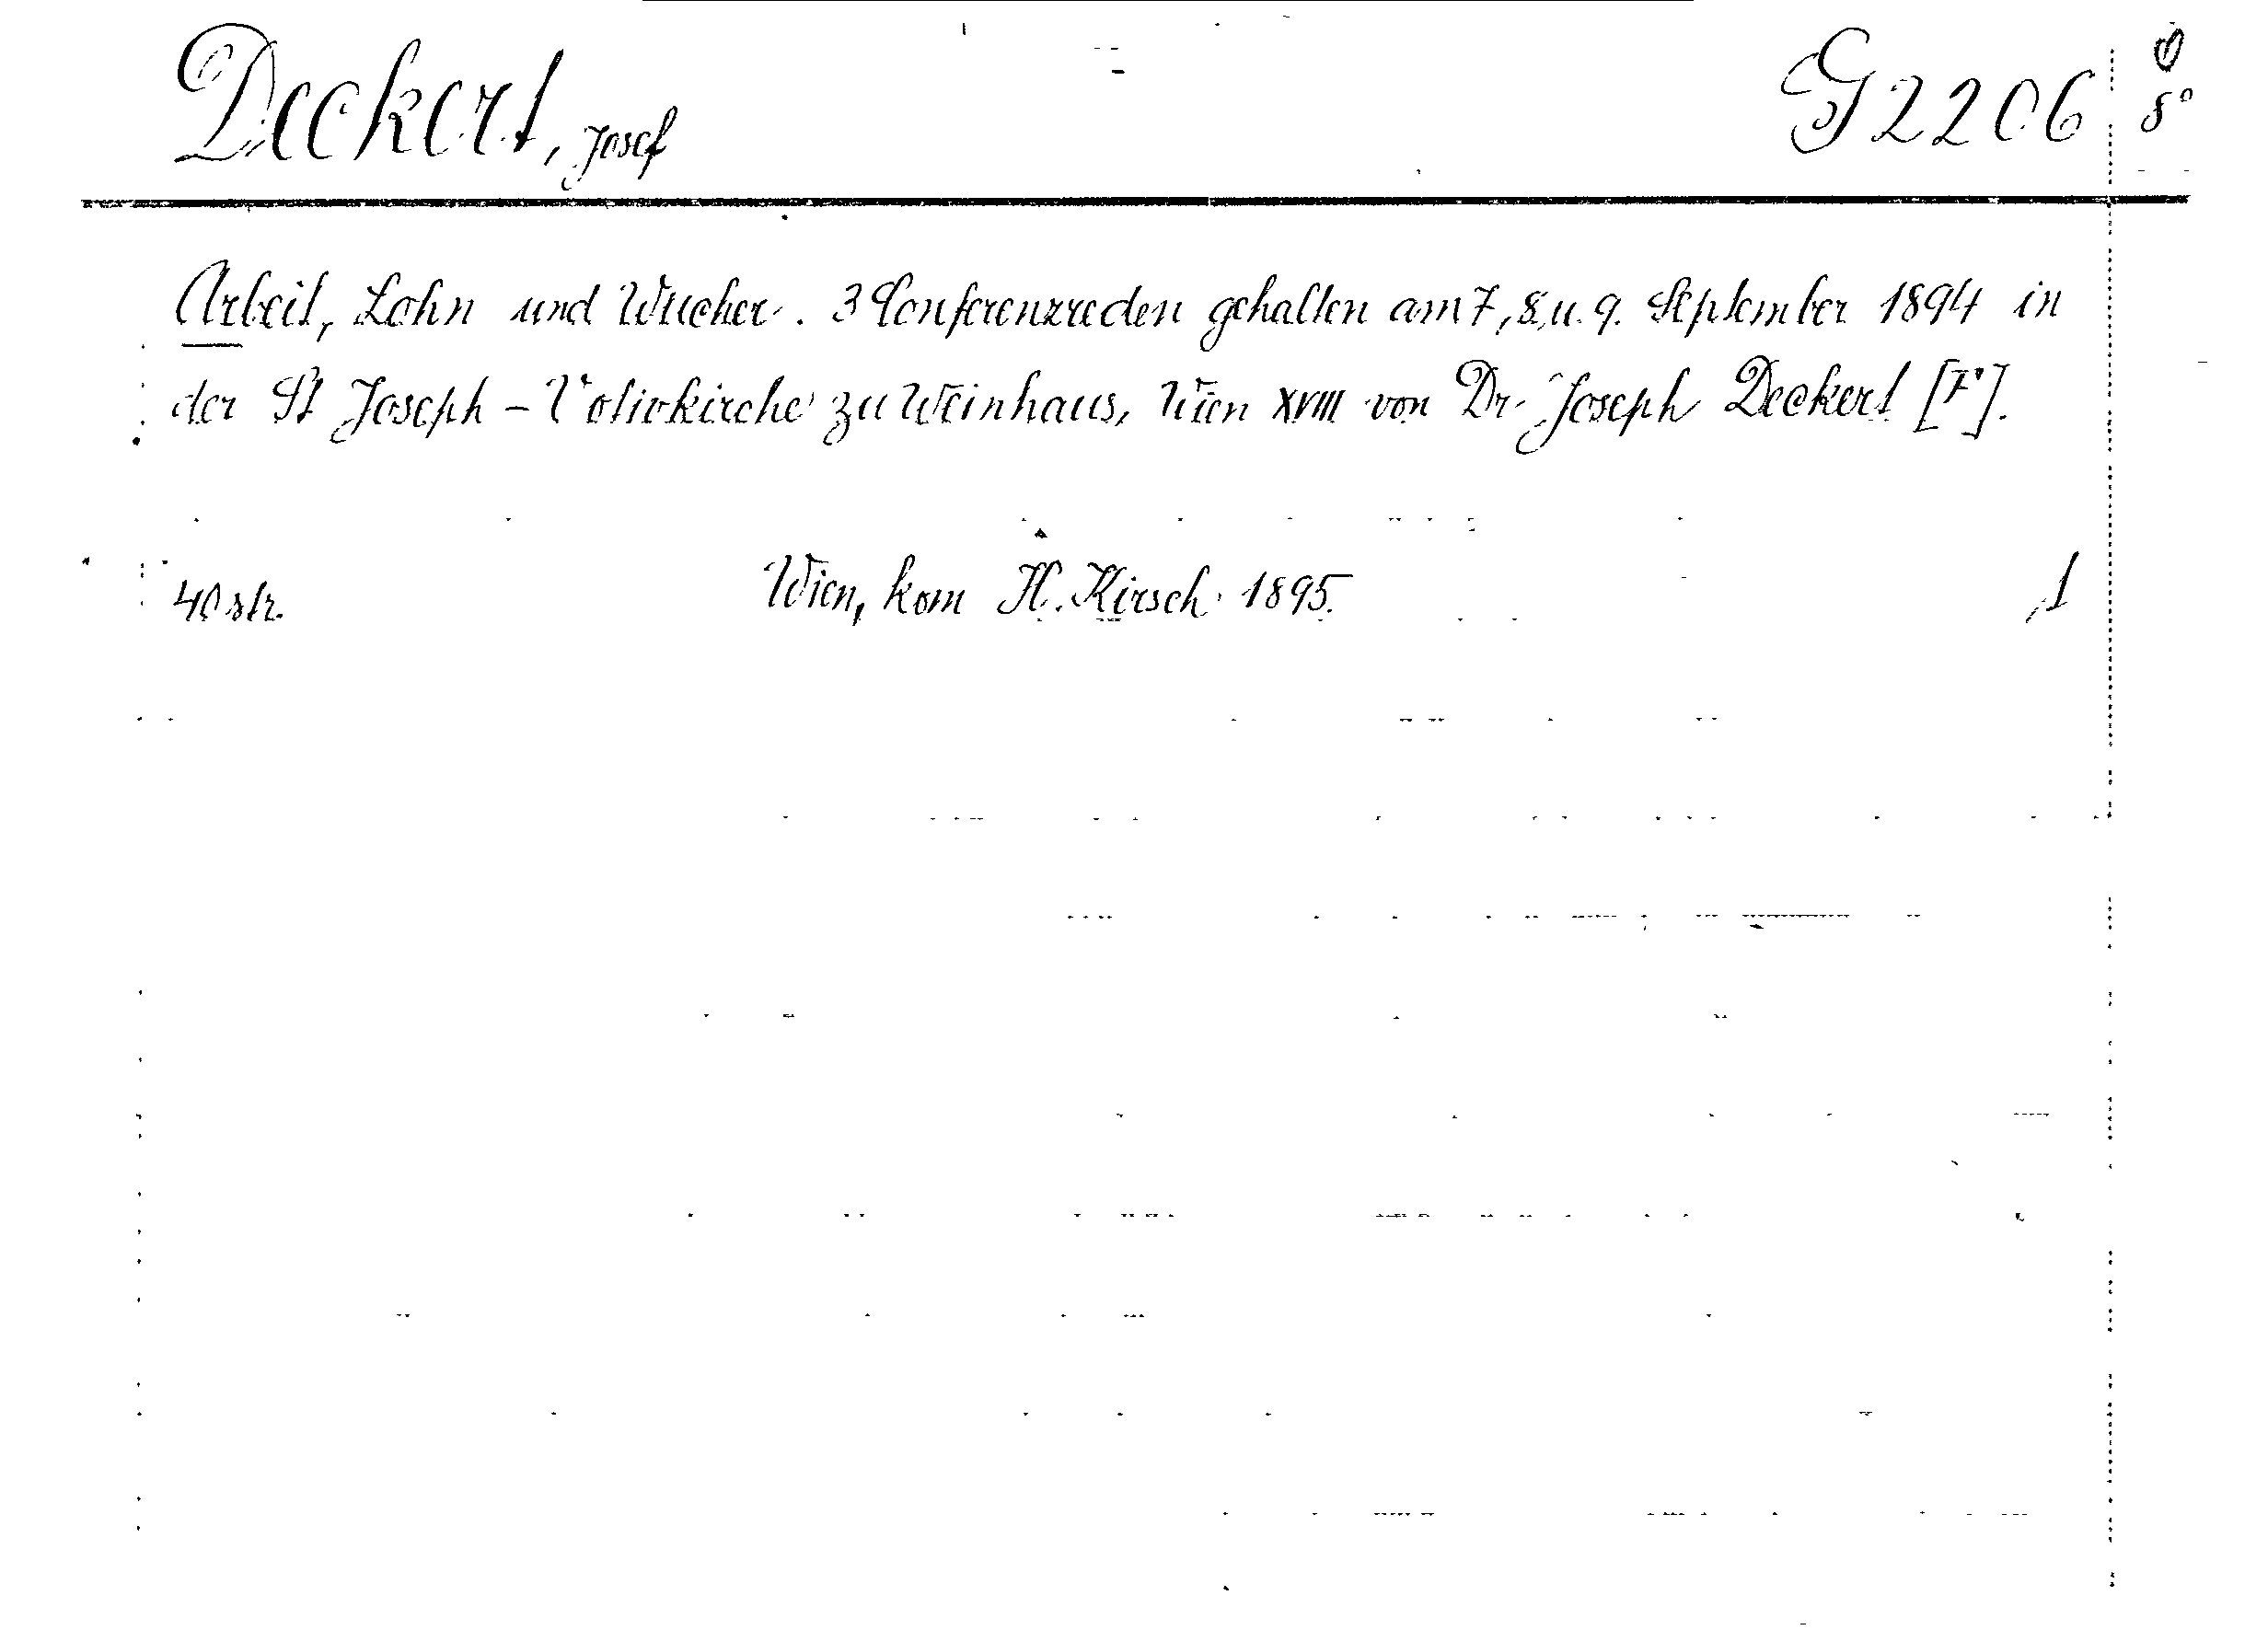 Deckert, Josef G 2206 8°
Arbeit, Lohn und Wucher. 3 Conferenzreden gehalten am 7, 8, u. 9. September 1894 in
der St Joseph-Votivkirche zu Weinhaus, Wien XVIII von Dr. Joseph Deckert [F].
40 str. Wien, kom H. Kirsch 1895. 1